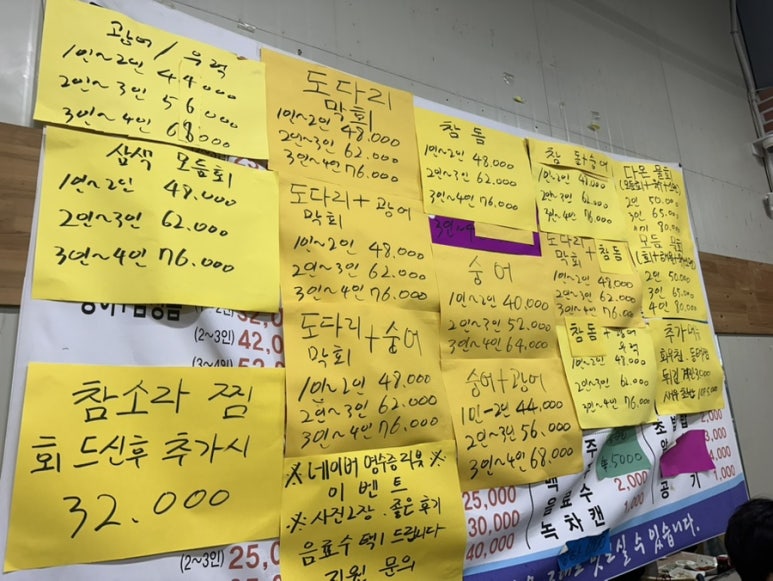 광어 / 우럭
1인~2인 44.000
2인~3인 56.000
3인~4인 68.000
삼색 모듬회
1인~2인 48.000
2인~3인 62.000
3인~4인 76.000
(2~3인) 42,0
참소라 찜
회 드신후 추가시
32.000
(2~3인) 25,0
도다리
막회
1인~2인 48.000
2인~3인 62.000
3인~4인 76.000
도다리 + 광어
막회
1인~2인 48.000
2인~3인 62.000
3인~4인 76.000
도다리 + 숭어
막회
1인~2인 48.000
2인~3인 62.000
3인~4인 76.000
※ 네이버 영수증 리뷰 ※
이벤트
※ 사진2장. 좋은 후기
음료수 택1 드립니다
참돔
1인~2인 48.000
2인~3인 62.000
3인~4인 76.000
숭어
1인~2인 40.000
2인~3인 52.000
3인~4인 64.000
숭어 + 광어
1인~2인 44.000
2인~3인 56.000
3인~4인 68.000
25,000
30,000
40,000
참돔+숭어
1인~2인 48.000
2인~3인 62.000
3인~4인 76.000
도다리 + 참돔
막회
1인~2인 48.000
2인~3인 62.000
3인~4인 76.00
참돔 + 광어
우럭
1인~2인 48.000
2인~3인 62.000
3인~4인 76.000
5000
음료수 2,000
녹차캔 1,000
2인 50.000
3인 65.00
모듬 물회
2인 50.000
3인 65.000
4인 80.000
추가메뉴
2,000
3,000
4,000
공기 1,000